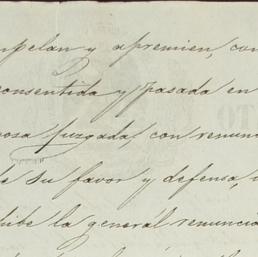 mpelan y apremien, con
consentida y pasada en
cosa juzgada, con renunc
de su favor y defensa,
hibe la general renuncia